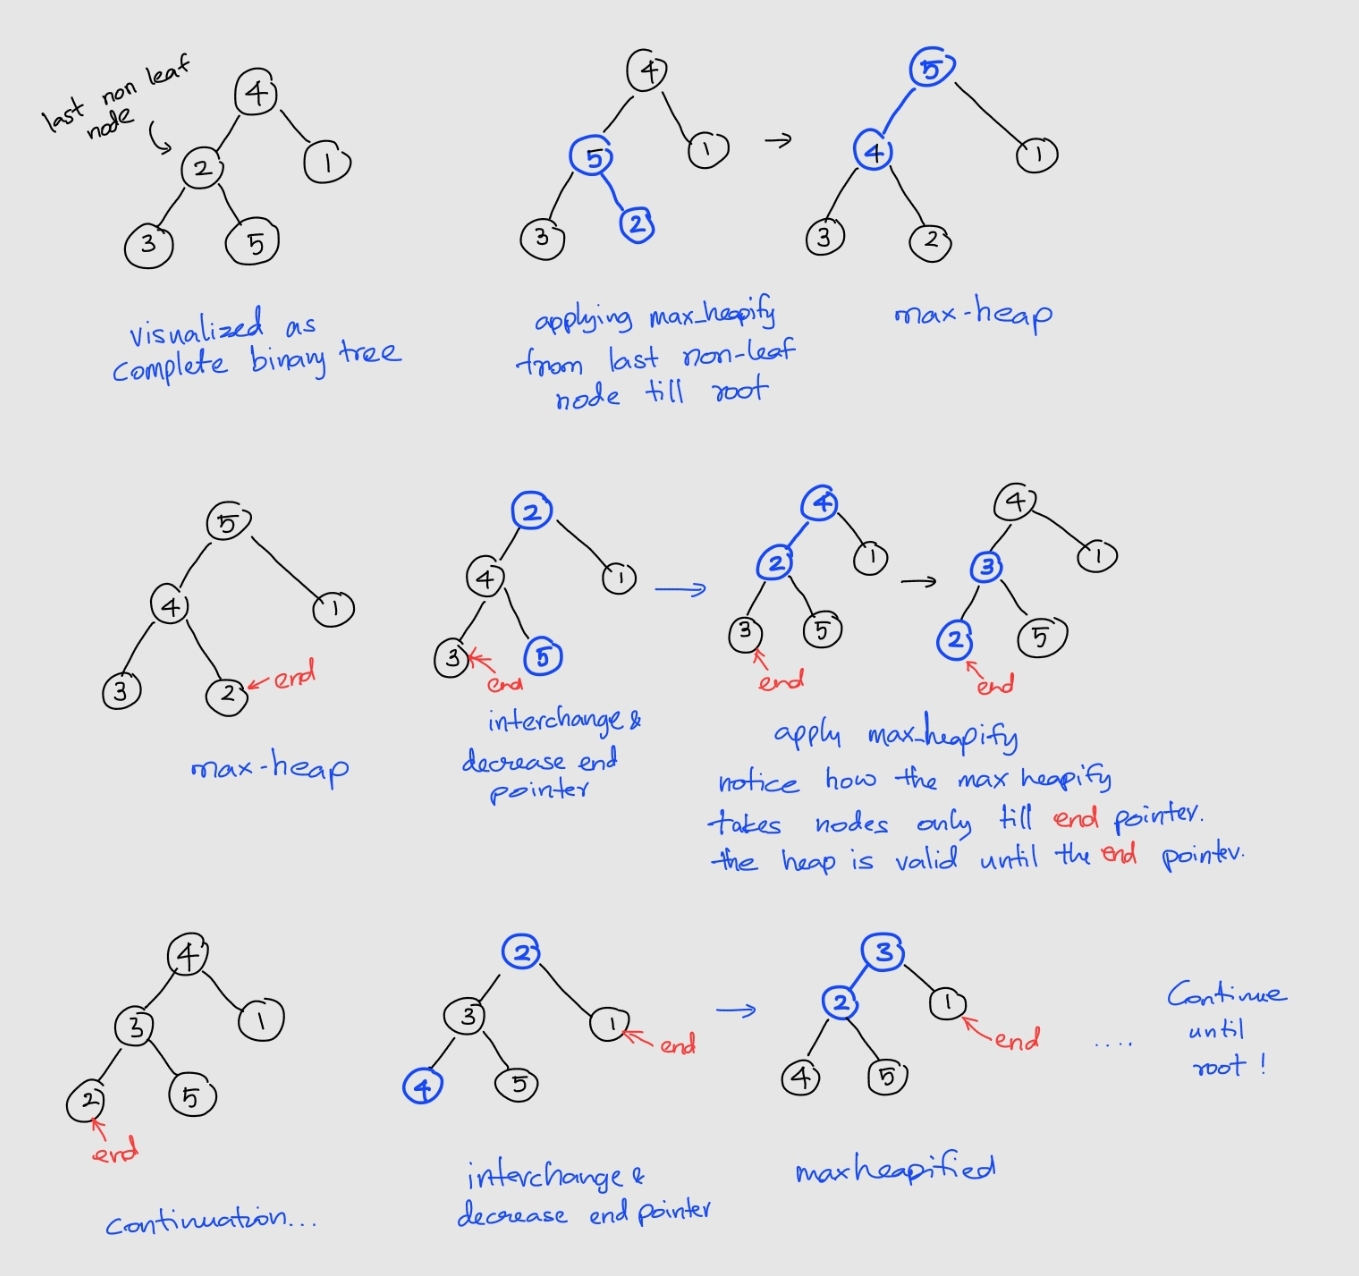 last non leaf
node
4
2
1
3
5
visualized as
complete binary tree
4
5
1
3
2
applying max_heapify
from last non-leaf
node till root
→
5
4
1
3
2
max-heap
5
4
1
3
2
end
max-heap
2
4
1
3
5
end
interchange &
decrease end
pointer
→
4
2
1
3
5
end
→
4
3
1
2
5
end
apply max_heapify
notice how the max heapify
takes nodes only till end pointer.
the heap is valid until the end pointer.
4
3
1
2
5
end
continuation...
2
3
1
end
4
5
interchange &
decrease end pointer
→
3
2
1
end
4
5
maxheapified
....
Continue
until
root !